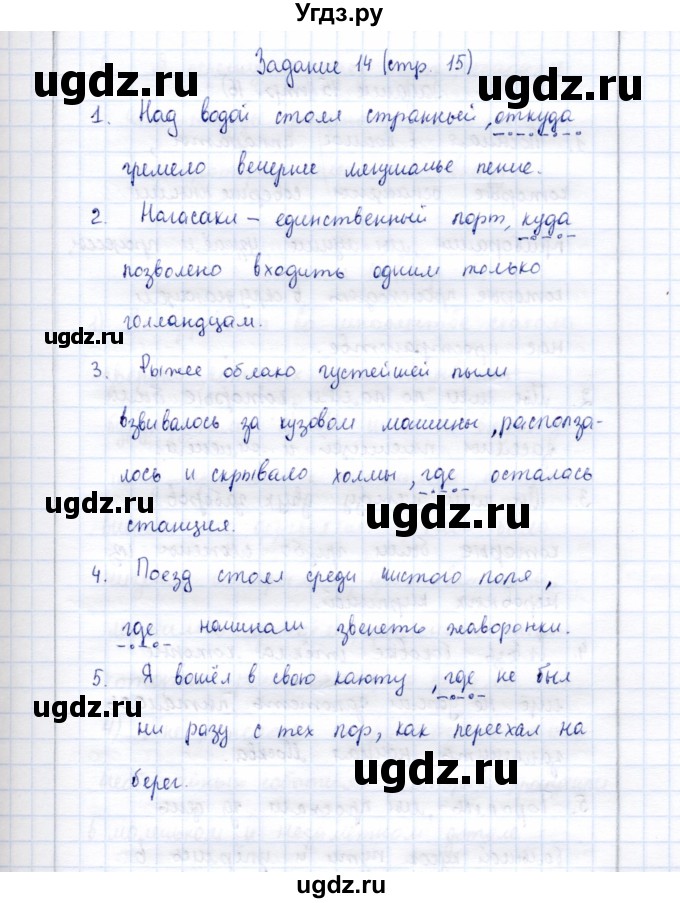 Угдз.ру
Задание 14 (стр. 15)
ugdz.ru ugdz.ru
1. Над водой стоял странный, откуда
гремело вечернее лягушачье пение.
2. Нагасаки – единственный порт, куда
позволено входить одним только
ugdz.ru
голландцам.
ugdz.ru
3. Рыжее облако густейшей пыли
взвивалось за кузовом машины, располза-
лось и скрывало холмы, где осталась
ugdz.ru ugdz.ru
станция.
4. Поезд стоял среди чистого поля,
где начинали звенеть жаворонки.
5. Я вошёл в свою каюту, где не был
ugdz.ru
ни разу с тех пор, как переехал на
берег.
ugdz.ru
ugdz.ru